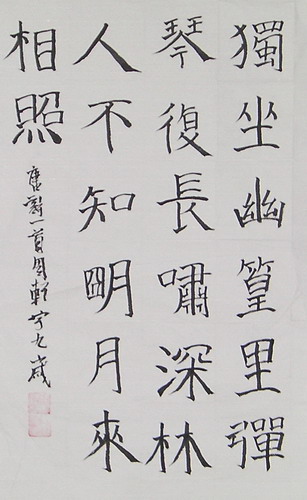 獨坐幽篁里彈
琴復長嘯深林
人不知明月來
相照
唐詩一首周軒宇九歲